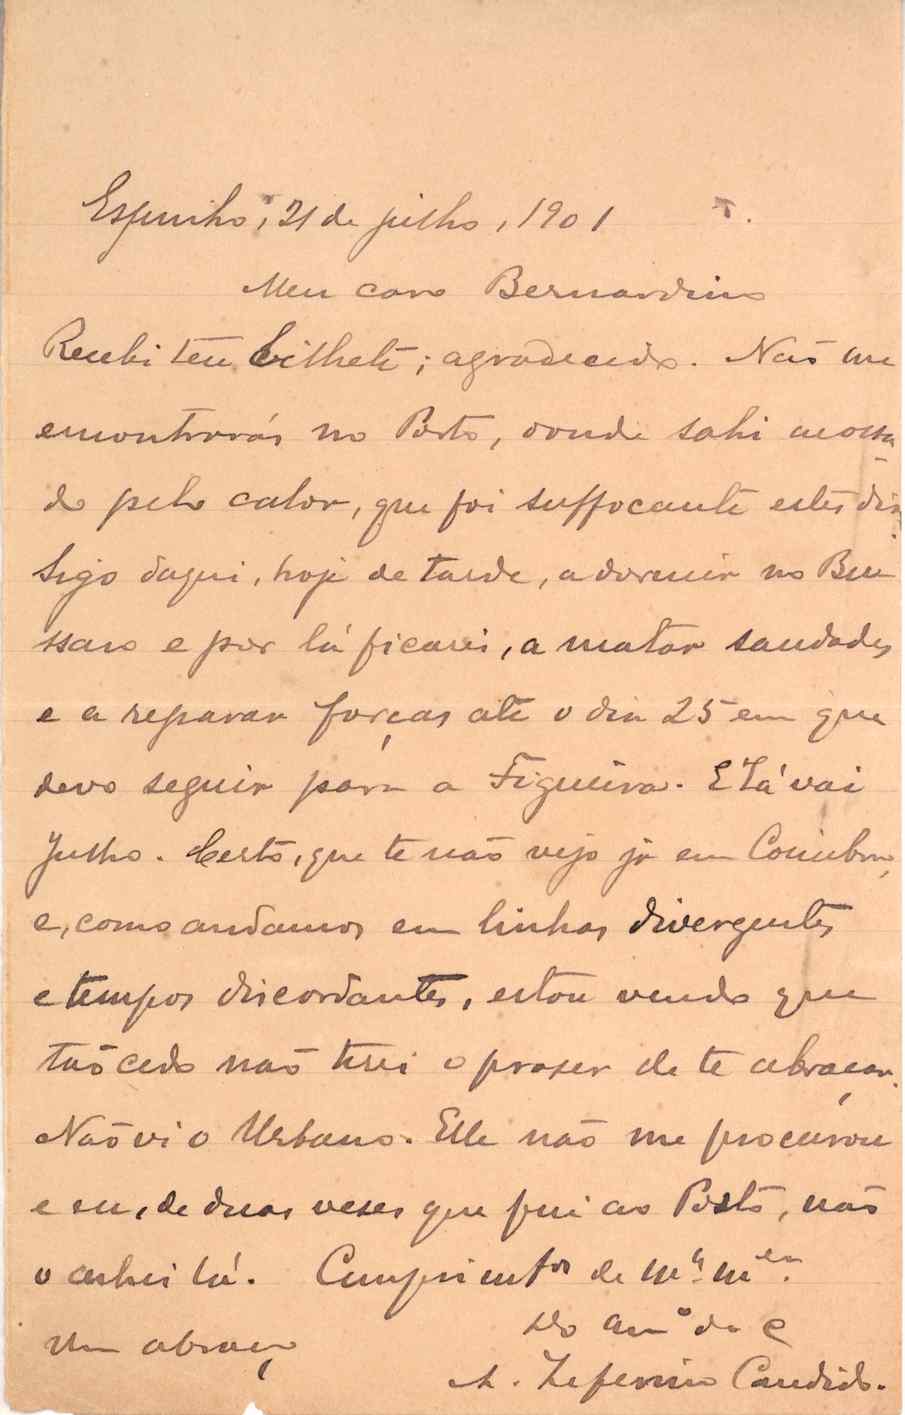 Espinho, 21 de julho, 1901
Meu caro Bernardino
Recebi teu bilhete; agradecido. Não me
encontrarás no Porto, donde sahi acossa-
do pelo calor, que foi suffocante estes dias.
Sigo daqui, hoje de tarde, a dormir no Bu-
ssaco e por lá ficarei, a matar saudades
e a reparar forças até o dia 25 em que
devo seguir para a Figueira. E lá vai
Julho. Certo, que te não vejo já em Coimbra,
e, como andamos em linhas divergentes
e tempos discordantes, estou vendo que
tão cedo não terei o praser de te abraçar.
Não vi o Urbano. Elle não me procurou
e eu, de duas veses que fui ao Porto, não
o achei lá. Cumprimtos de mª mer.
Um abraço
do amº do C
A. Zeferino Candido.